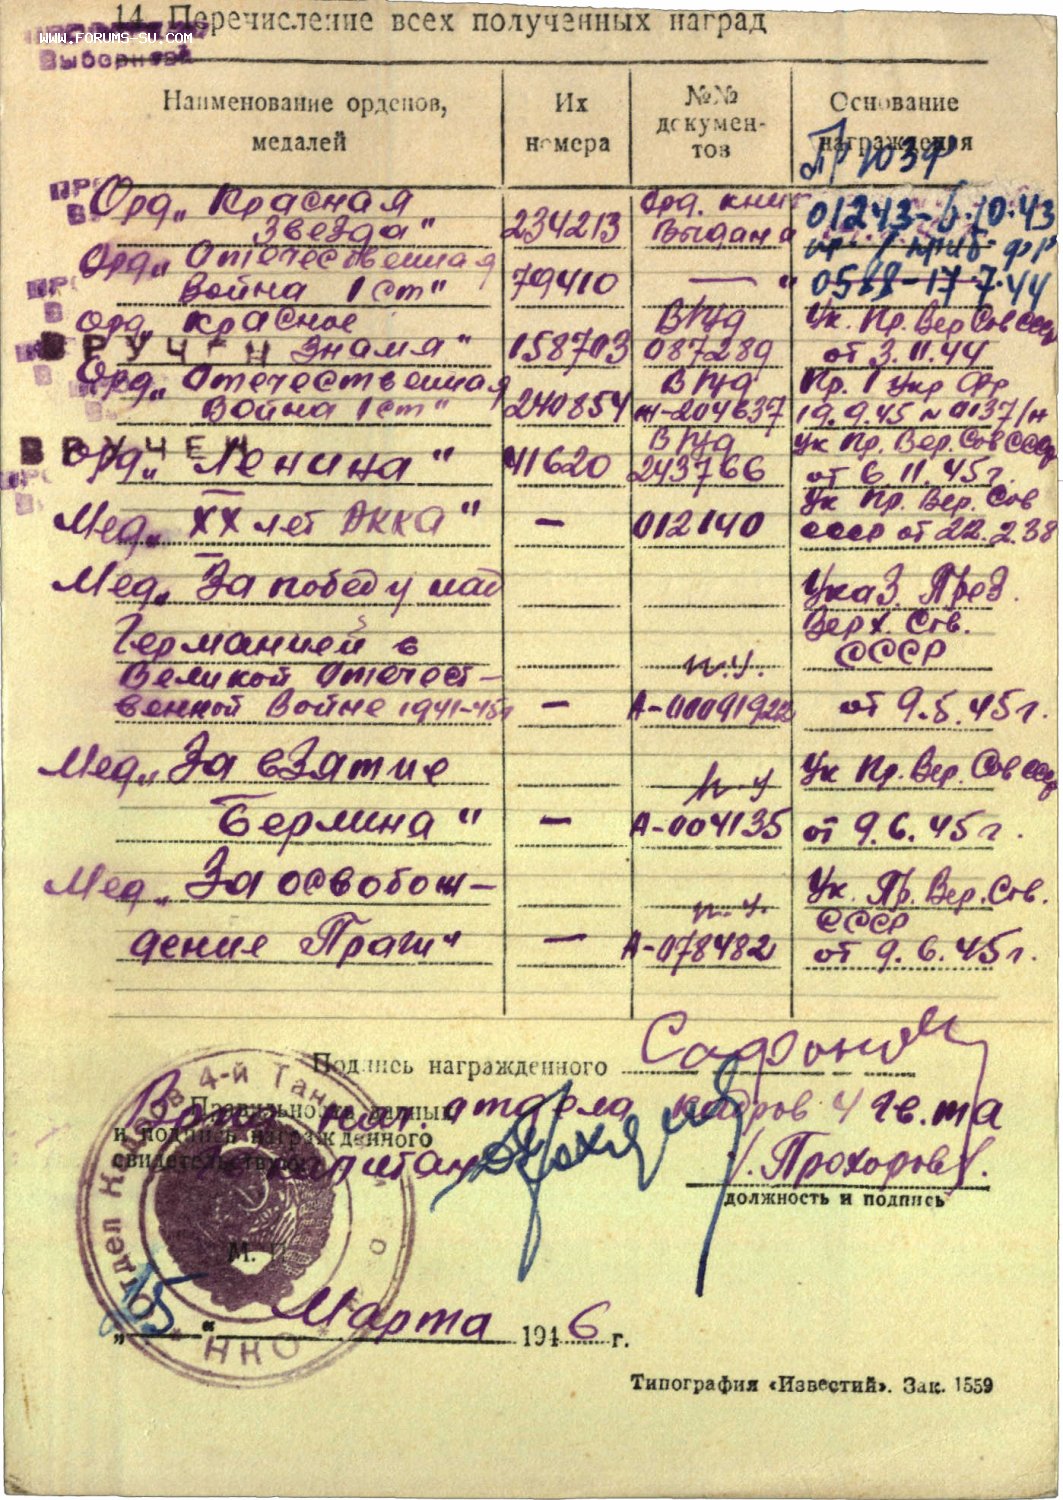 14. Перечисление всех полученных наград
WWW.FORUMS-SU.COM
Выборнов
Наименование орденов, медалей
Их номера
№№ документов
Основание награждения
Пр ЮЗФ
Орд „Красная
Звезда"
234213
Орд. книг
выдана
01243-6.10.43
Орд „Отечественная
Война 1 ст"
79410
— "
0588-17.7.44
Орд „Красное
Знамя"
ВРУЧЕН
158703
В/уд
087289
Ук. Пр. Вер Сов СССР
от 3.11.44
Орд „Отечественная
Война 1 ст"
240854
В/уд
204637
Пр. 1 Укр Фр
19.9.45 № 0137/н
ВРУЧЕН
Орд „Ленина"
41620
В/уд
243766
Ук Пр. Вер. Сов СССР
от 6.11.45г.
Мед „XX лет РККА"
—
012140
Ук Пр. Вер. Сов
СССР от 22.2.38
Мед „За победу над
Германией в
Великой Отечест-
венной Войне 1941-45г
—
н.у.
А-00091922
Указ. През.
Верх. Сов.
СССР
от 9.5.45г.
Мед „За взятие
Берлина"
—
н.у
А-004135
Ук Пр. Вер. Сов СССР
от 9.6.45г.
Мед „За освобож-
дение Праги"
—
н.у.
А-078482
Ук. Пр. Вер. Сов.
СССР
от 9.6.45г.
Подпись награжденного Сафонов
Правильность данных
и подпись награжденного
свидетельствую
нач. отдела кадров 4 гв. та
капитан
/Прохоров/.
должность и подпись
Отдел Кадров 4-й Танк
НКО
М. П.
„15" Марта 1946 г.
Типография «Известий». Зак. 1559